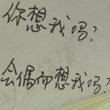 你想我吗?
会偶尔想我吗?